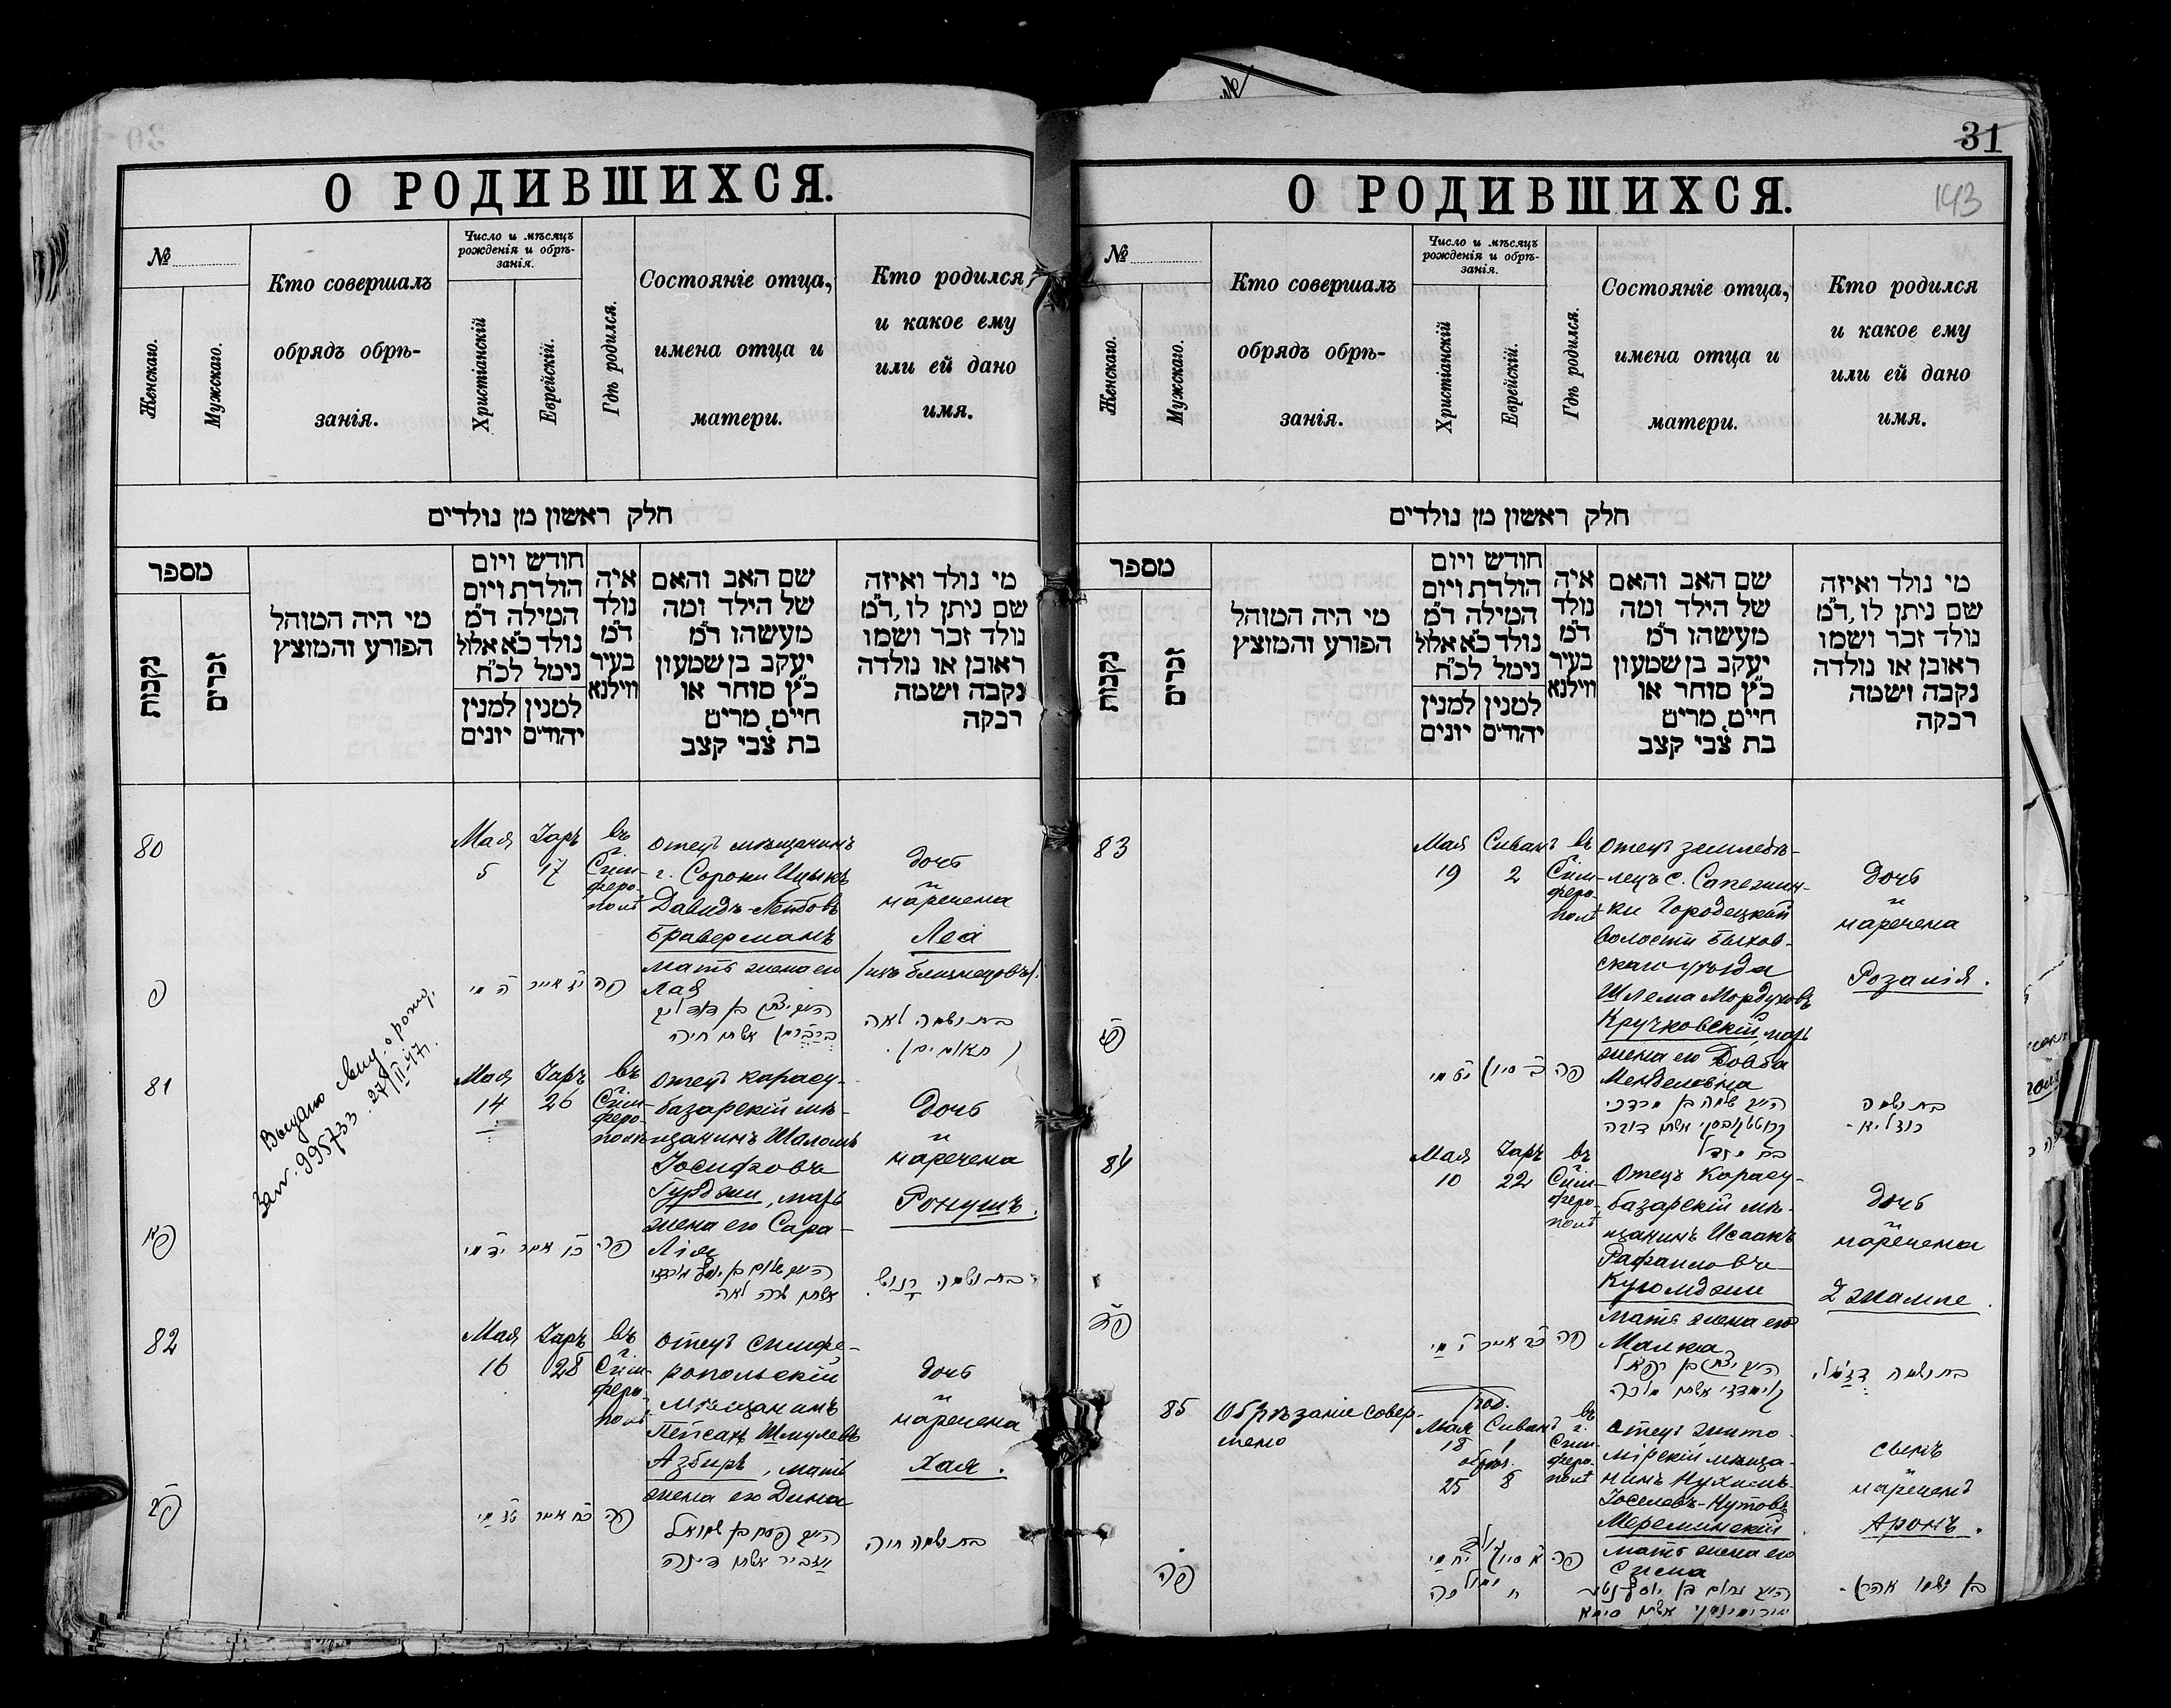 О РОДИВШИХСЯ.
№
Женскаго.
Мужскаго.
Кто совершалъ
обрядъ обрѣ-
занія.
Число и мѣсяцъ
рожденія и обрѣ-
занія.
Христіанскій
Еврейскій.
Гдѣ родился.
Состояніе отца,
имена отца и
матери.
Кто родился
и какое ему
или ей дано
имя.
חלק ראשון מן נולדים
מספר
נקבות
זכרים
מי היה המוהל
הפורע והמוצץ
חודש ויום
הולדת ויום
המילה ד"מ
נולד כ"א אלול
נימל לכ"ח
למנין יונים
למנין יהודים
איה
נולד
ד"מ
בעיר
ווילנא
שם האב והאם
של הילד ומה
מעשהו ד"מ
יעקב בן שמעון
כ"ץ סוחר או
חיים, מרים
בת צבי קצב
מי נולד ואיזה
שם ניתן לו, ד"מ
נולד זכר ושמו
ראובן או נולדה
נקבה ושמה
רבקה
80
Мая
5
Іаръ
17
въ
г.
Сим-
феро-
полѣ
отецъ мѣщанинъ
г. Сороки Ицыкъ
Давидъ-Лейбовъ
Браверманъ
мать жена его
Хая
дочь
и
наречена
Леа
/изъ близнецовъ/.
פ
ה מיי
יז אייר
פה
אשתו חיה
בת ושמה לאה
(תאומים).
Выдано свид. о рожд.
27/II-47г.
81
Мая
14
Іаръ
26
въ
г.
Сим-
феро-
полѣ
отецъ карасу-
базарскій мѣ-
щанинъ Шаломъ
Іосифовъ
Гурджи, мать
жена его Сара-
Лія
дочь
и
наречена
Ронушъ.
פא
יד מיי
כו אייר
פה
אשתו שרה לאה
בת ושמה רנוש.
82
Мая
16
Іаръ
28
въ
г.
Сим-
феро-
полѣ
отецъ симфе-
ропольскій
мѣщанинъ
Пейсахъ Шмулевъ
Азбиръ, мать
жена его Дина
дочь
и
наречена
Хая.
פב
טז מיי
כח אייר
פה
פסח בן שמואל
אשתו דינה
בת ושמה חיה
31
143
О РОДИВШИХСЯ.
№
Женскаго.
Мужскаго.
Кто совершалъ
обрядъ обрѣ-
занія.
Число и мѣсяцъ
рожденія и обрѣ-
занія.
Христіанскій
Еврейскій.
Гдѣ родился.
Состояніе отца,
имена отца и
матери.
Кто родился
и какое ему
или ей дано
имя.
חלק ראשון מן נולדים
מספר
נקבות
זכרים
מי היה המוהל
הפורע והמוצץ
חודש ויום
הולדת ויום
המילה ד"מ
נולד כ"א אלול
נימל לכ"ח
למנין יונים
למנין יהודים
איה
נולד
ד"מ
בעיר
ווילנא
שם האב והאם
של הילד ומה
מעשהו ד"מ
יעקב בן שמעון
כ"ץ סוחר או
חיים, מרים
בת צבי קצב
מי נולד ואיזה
שם ניתן לו, ד"מ
נולד זכר ושמו
ראובן או נולדה
נקבה ושמה
רבקה
83
Мая
19
Сиванъ
2
въ
г.
Сим-
феро-
полѣ
отецъ землевла-
лецъ с. Сапежин-
ки Городецкой
волости Быхов-
скаго уѣзда
Шлема Мордуховъ
Кручковскій, мать
жена его Довба
Менделевна
дочь
и
наречена
Розалія.
פג
יט מיי
ב סיון
פה
שלמה בן מרדכי
בת ושמה
רוזליא-
84
Мая
10
Іаръ
22
въ
г.
Сим-
феро-
полѣ
отецъ Карасу-
базарскій мѣ-
щанинъ Исаакъ
Рафаиловъ
Куюмджи
мать жена его
Малка
дочь
и
наречена
Джампе.
פד
י מיי
כב אייר
פה
יצחק בן רפאל
אשתו מלכה
בת ושמה
85
Обрѣзаніе совер-
шено
род.
Мая Сиванъ
18 1
обрѣз.
25 8
въ
г.
Сим-
феро-
полѣ
отецъ жито-
мірскій мѣща-
нинъ Нухимъ
Іоселевъ-Нутовъ
Мереминскій
мать жена его
Сима
сынъ
и
нареченъ
Аронъ.
פה
יח מיי
א סיון
פה
נחום בן יוסף
אשתו סימא
בן ושמו אהרן-